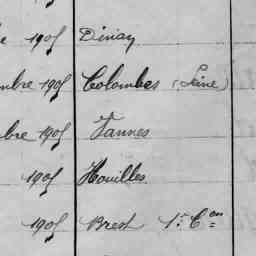 e 1905 Dinay
mbre 1905 Colombes (Seine)
bre 1905 Vannes
1905 Houilles
1905 Brest 1er Con